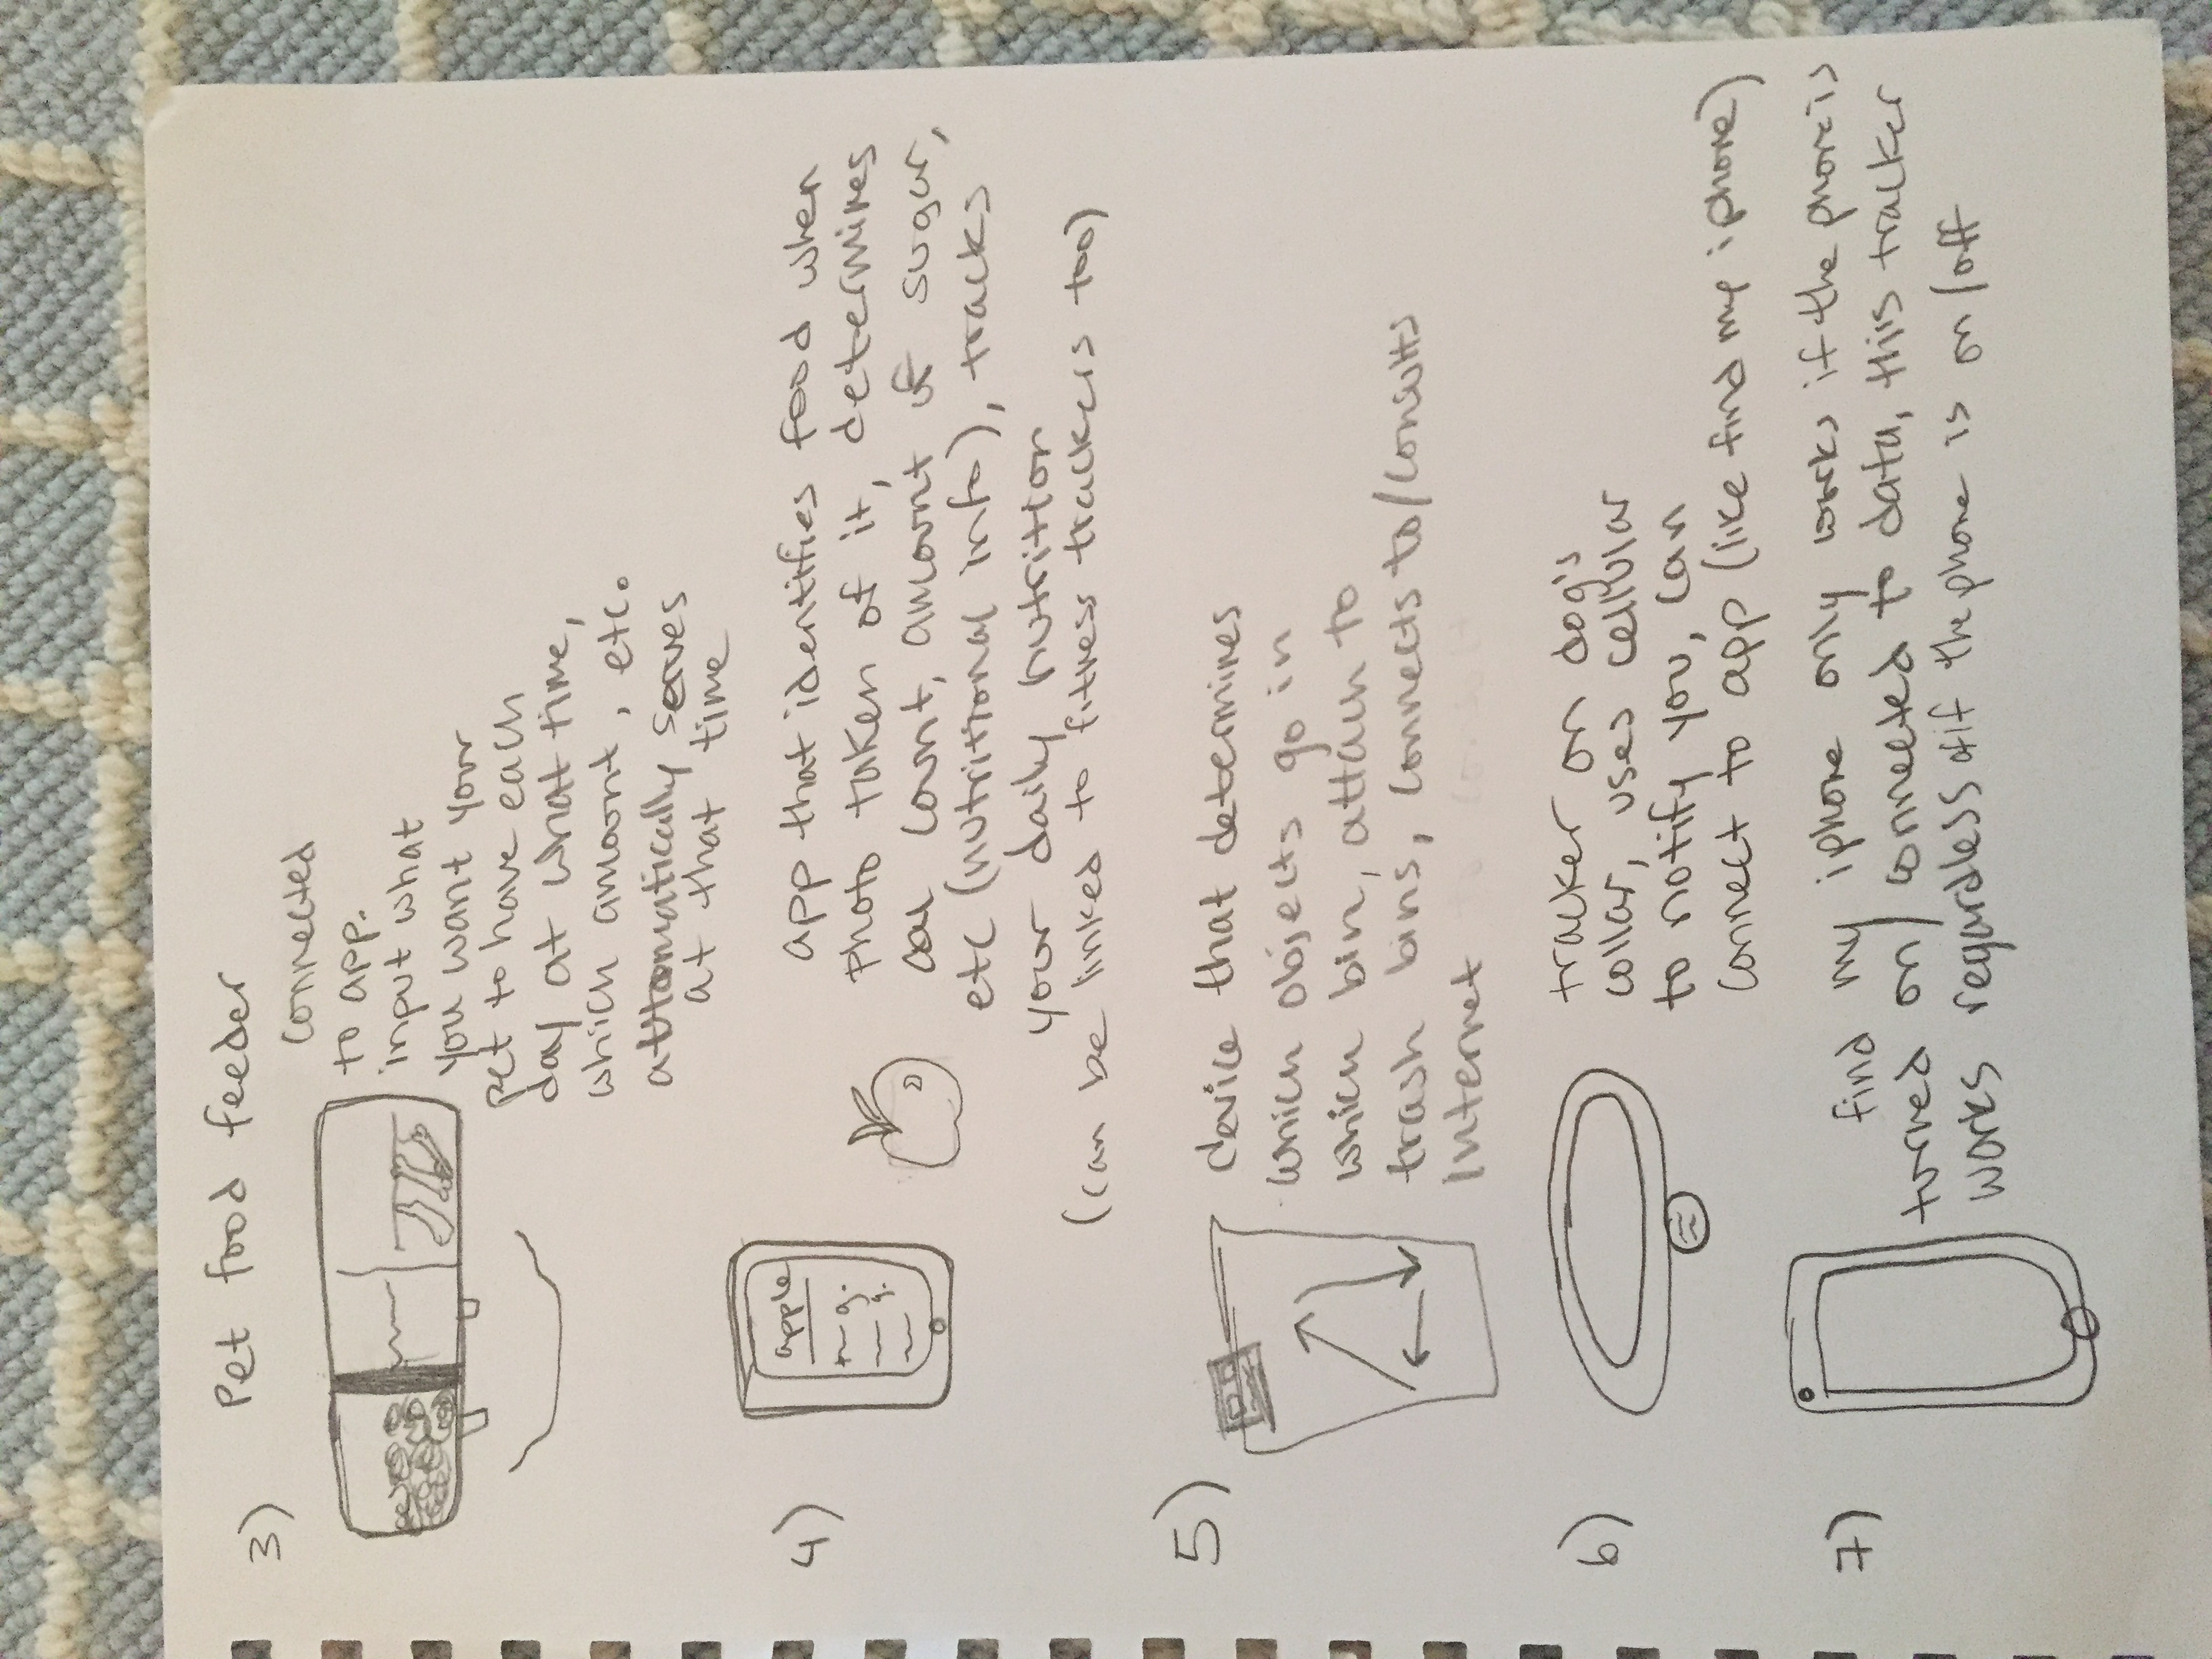 3) Pet food feeder
connected
to app.
input what
you want your
pet to have each
day at what time,
which amount, etc.
automatically serves
at that time
4)
apple
g.
g.
app that identifies food when
photo taken of it, determines
cal count, amount of sugar,
etc (nutritional info), tracks
your daily nutrition
(can be linked to fitness trackers too)
5)
device that determines
which objects go in
which bin, attach to
trash bins, connects to/consults
Internet
6)
tracker on dog's
collar, uses cellular
to notify you, can
connect to app (like find my iphone)
7)
find my iphone only works if the phone is
turned on/connected to data, this tracker
works regardless of if the phone is on/off